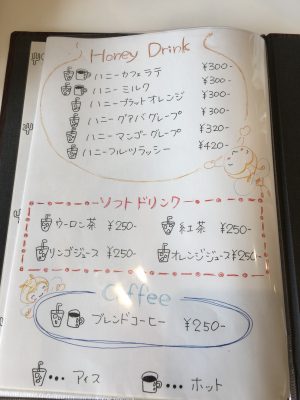 Honey Drink
ハニーカフェラテ ¥300-
ハニーミルク ¥300-
ハニーブラッドオレンジ ¥300-
ハニーグァバグレープ ¥300-
ハニーマンゴーグレープ ¥320-
ハニーフルーツラッシー ¥420-
ソフトドリンク
ウーロン茶 ¥250- 紅茶 ¥250-
リンゴジュース ¥250- オレンジジュース ¥250-
Coffee
ブレンドコーヒー ¥250-
••• アイス ••• ホット